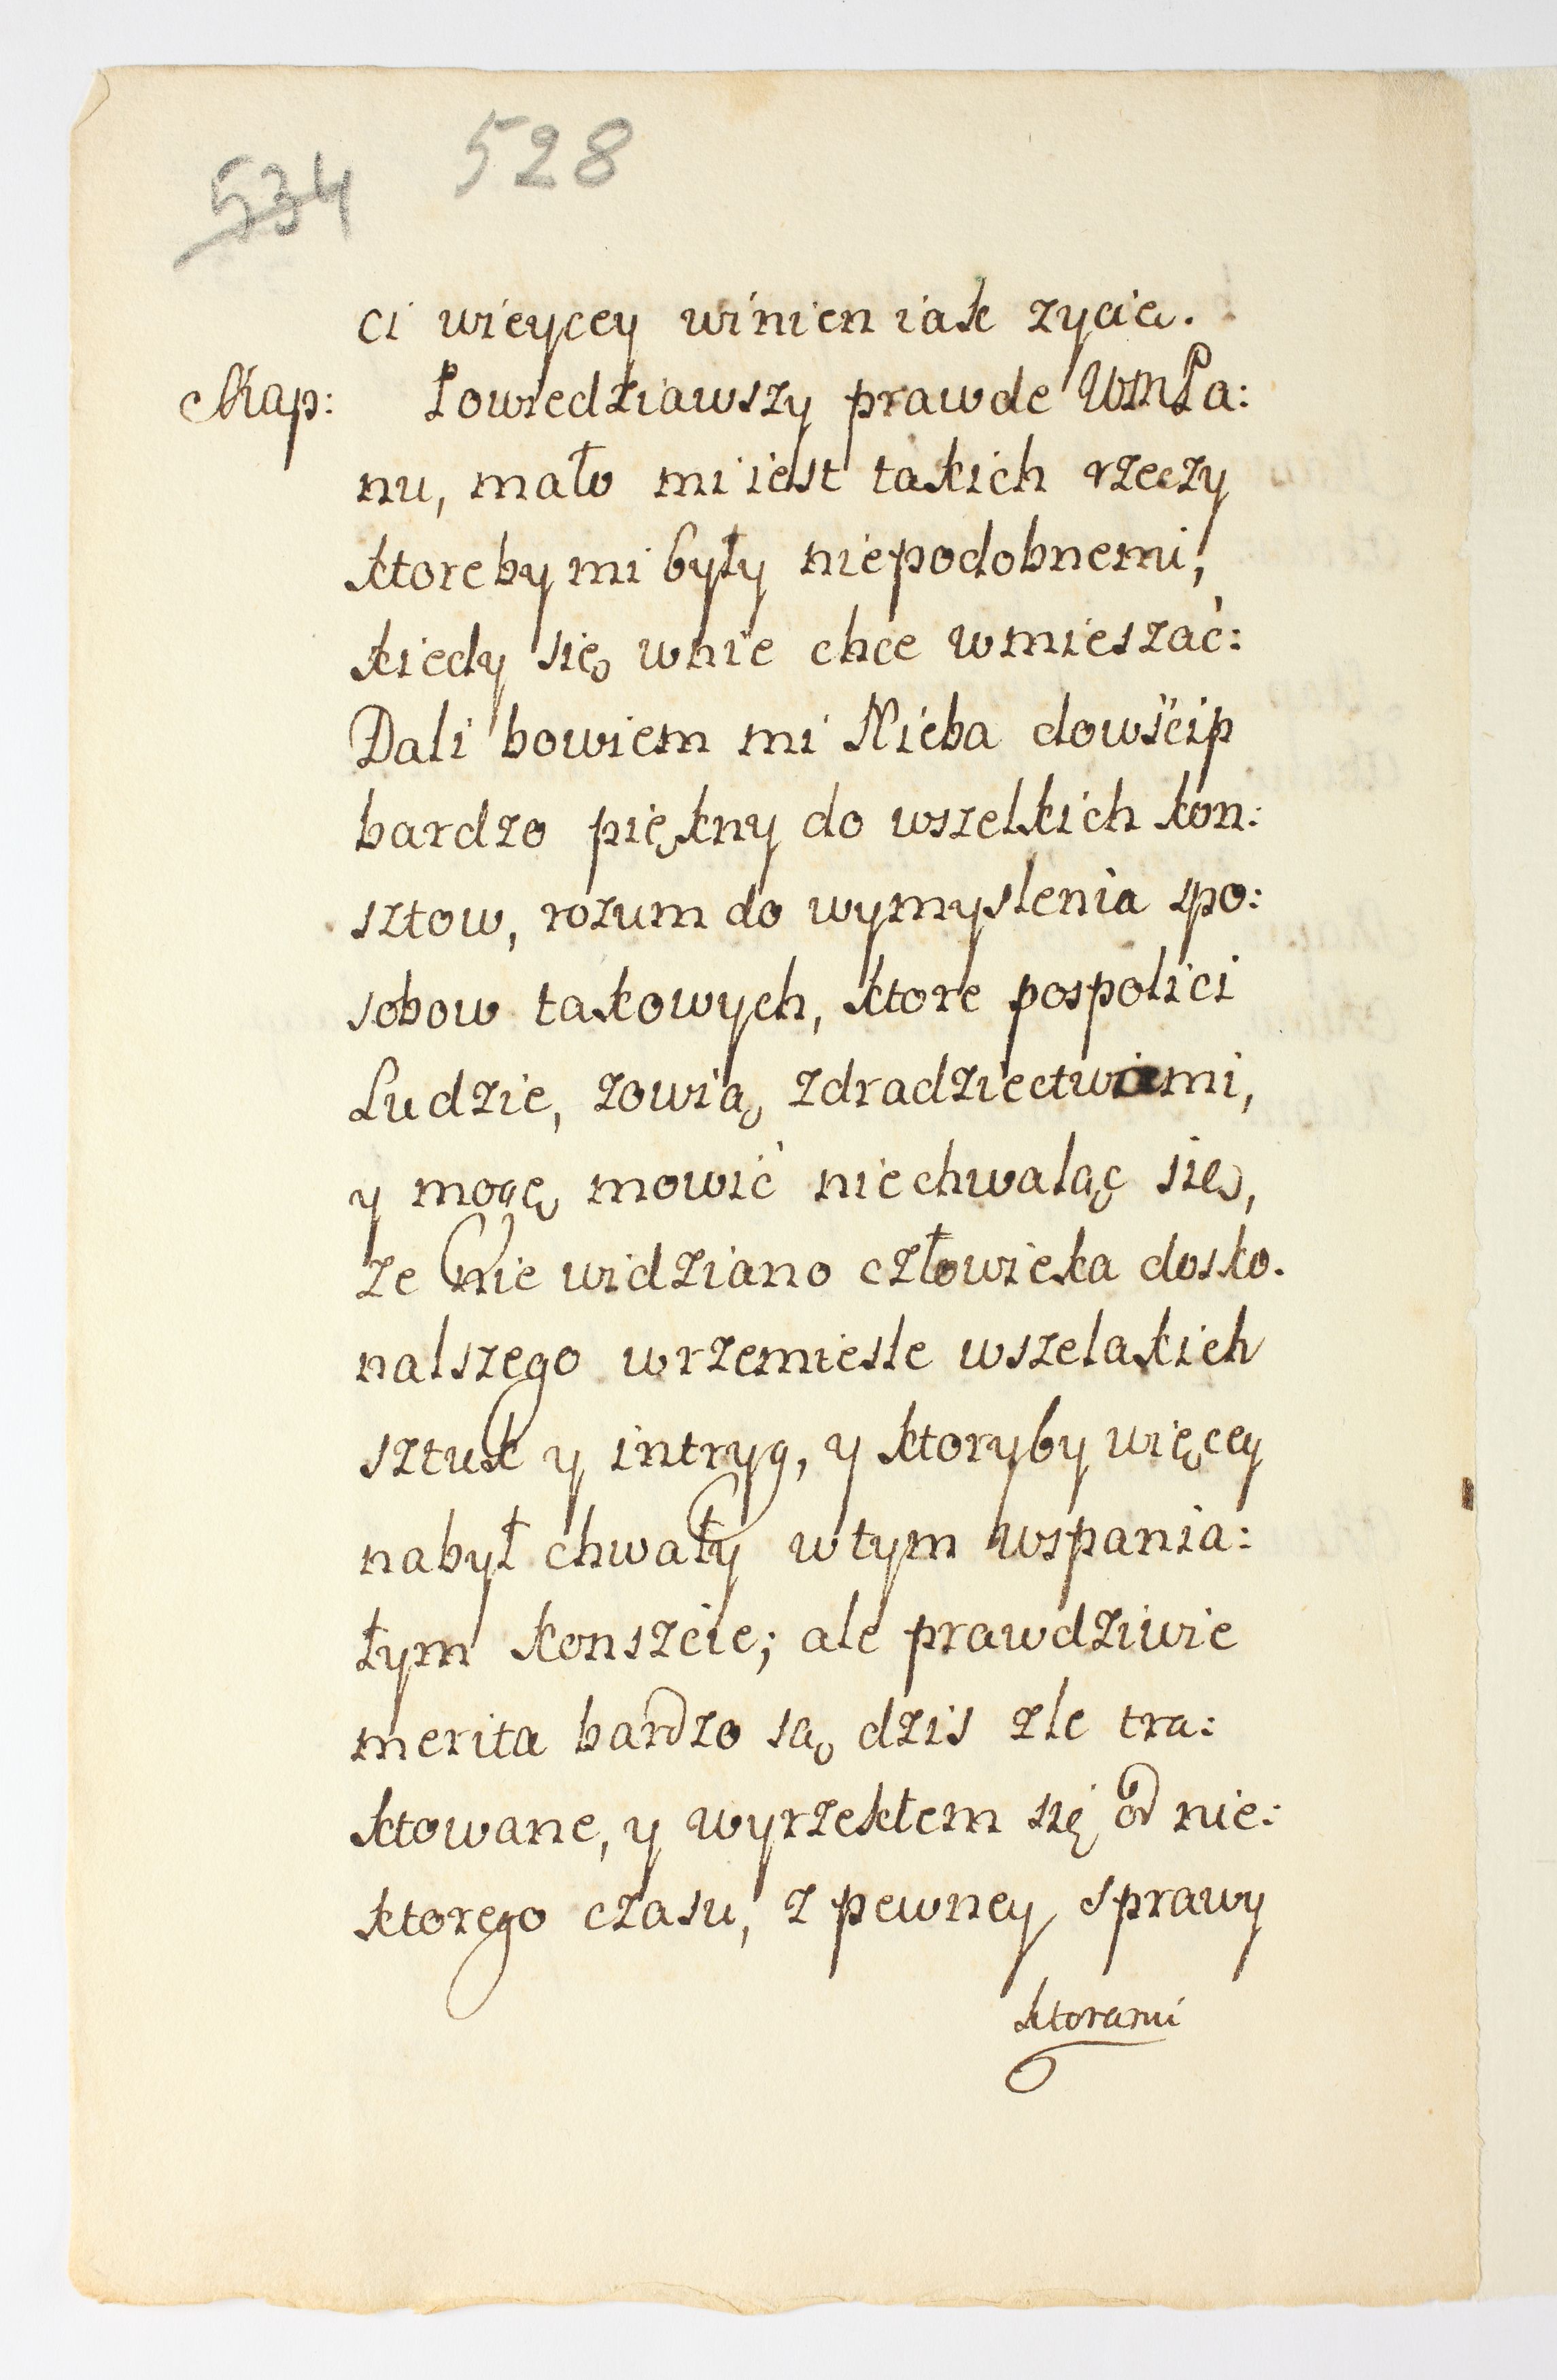 528
534
ci wieycey winien iak zycie.
Skap: Powiedziawszy prawde WMPa:
nu, mało mi iest takich rzeczy
ktore by mi były niepodobnemi,
kiedy się wnie chce wmieszać:
Dali bowiem mi Nieba dowścip
bardzo piękny do wszelkich kon:
sztow, rozum do wymyslenia spo:
sobow takowych, ktore pospolici
Ludzie, zowią zdradziectwami,
y mogę mowić niechwaląc się,
ze nie widziano człowieka dosko.
nalszego wrzemiesle wszelakich
sztuk y intryg, y ktoryby więcey
nabył chwały wtym wspania:
łym konszcie; ale prawdziwie
merita bardzo są dzis zle tra:
ktowane, y wyrzekłem się od nie:
ktorego czasu, z pewney sprawy
ktorami